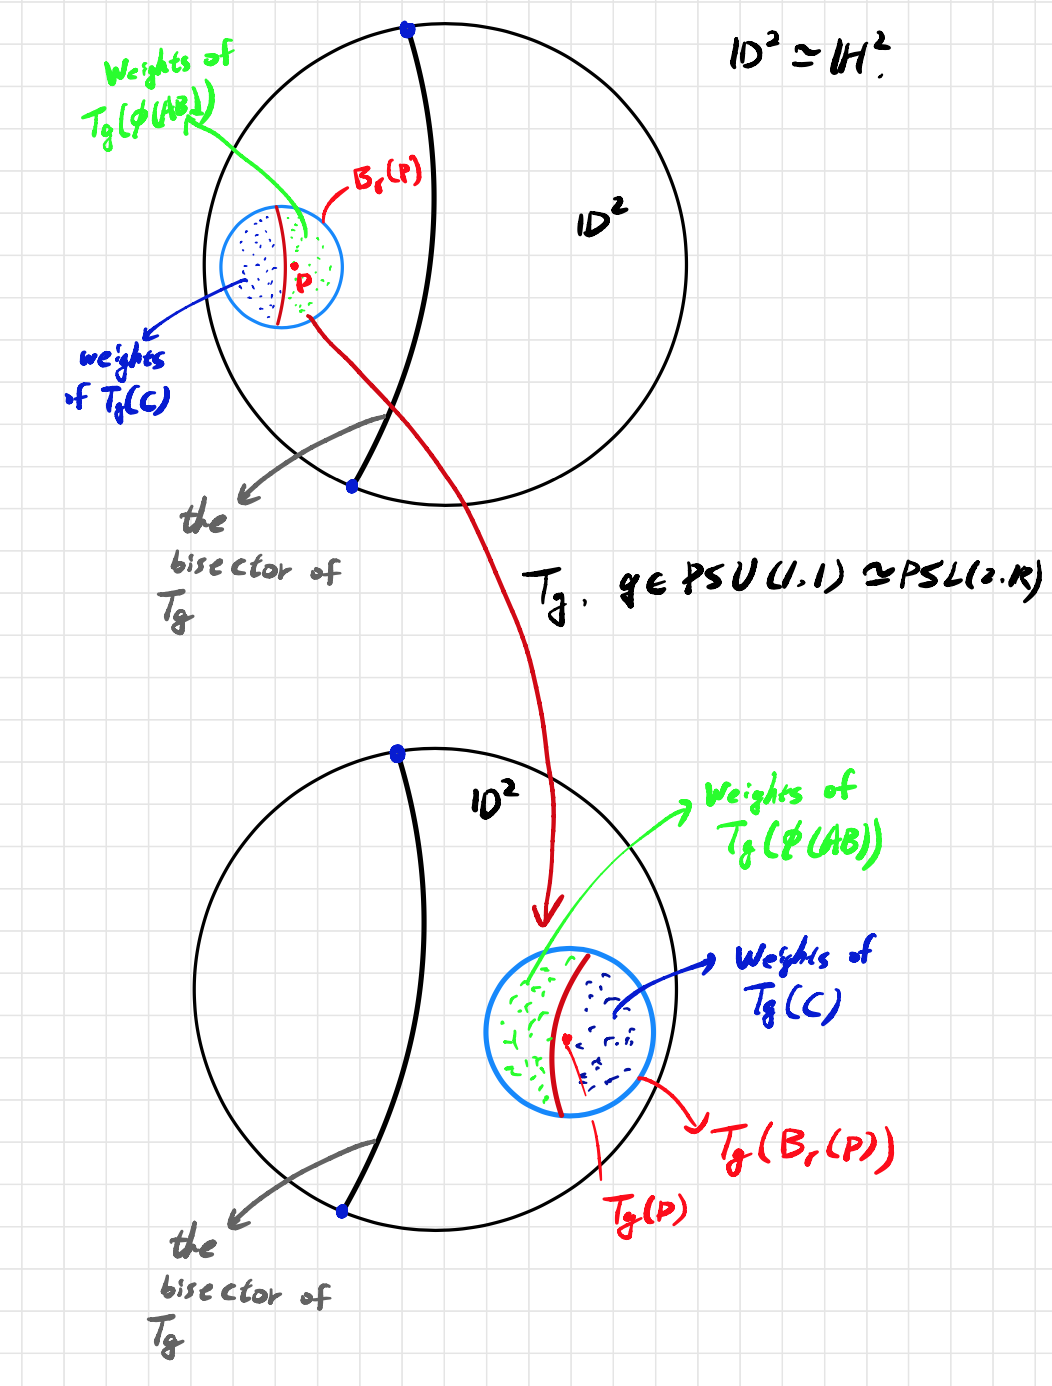 ID² ≃ IH².
Weights of
Tg(φ(AB))
Br(P)
ID²
P
weights
of Tg(C)
the
bisector of
Tg
Tg, g∈ PSU(1,1) ≃ PSL(2,IR)
ID²
Weights of
Tg(φ(AB))
Weights of
Tg(C)
Tg(Br(P))
Tg(P)
the
bisector of
Tg